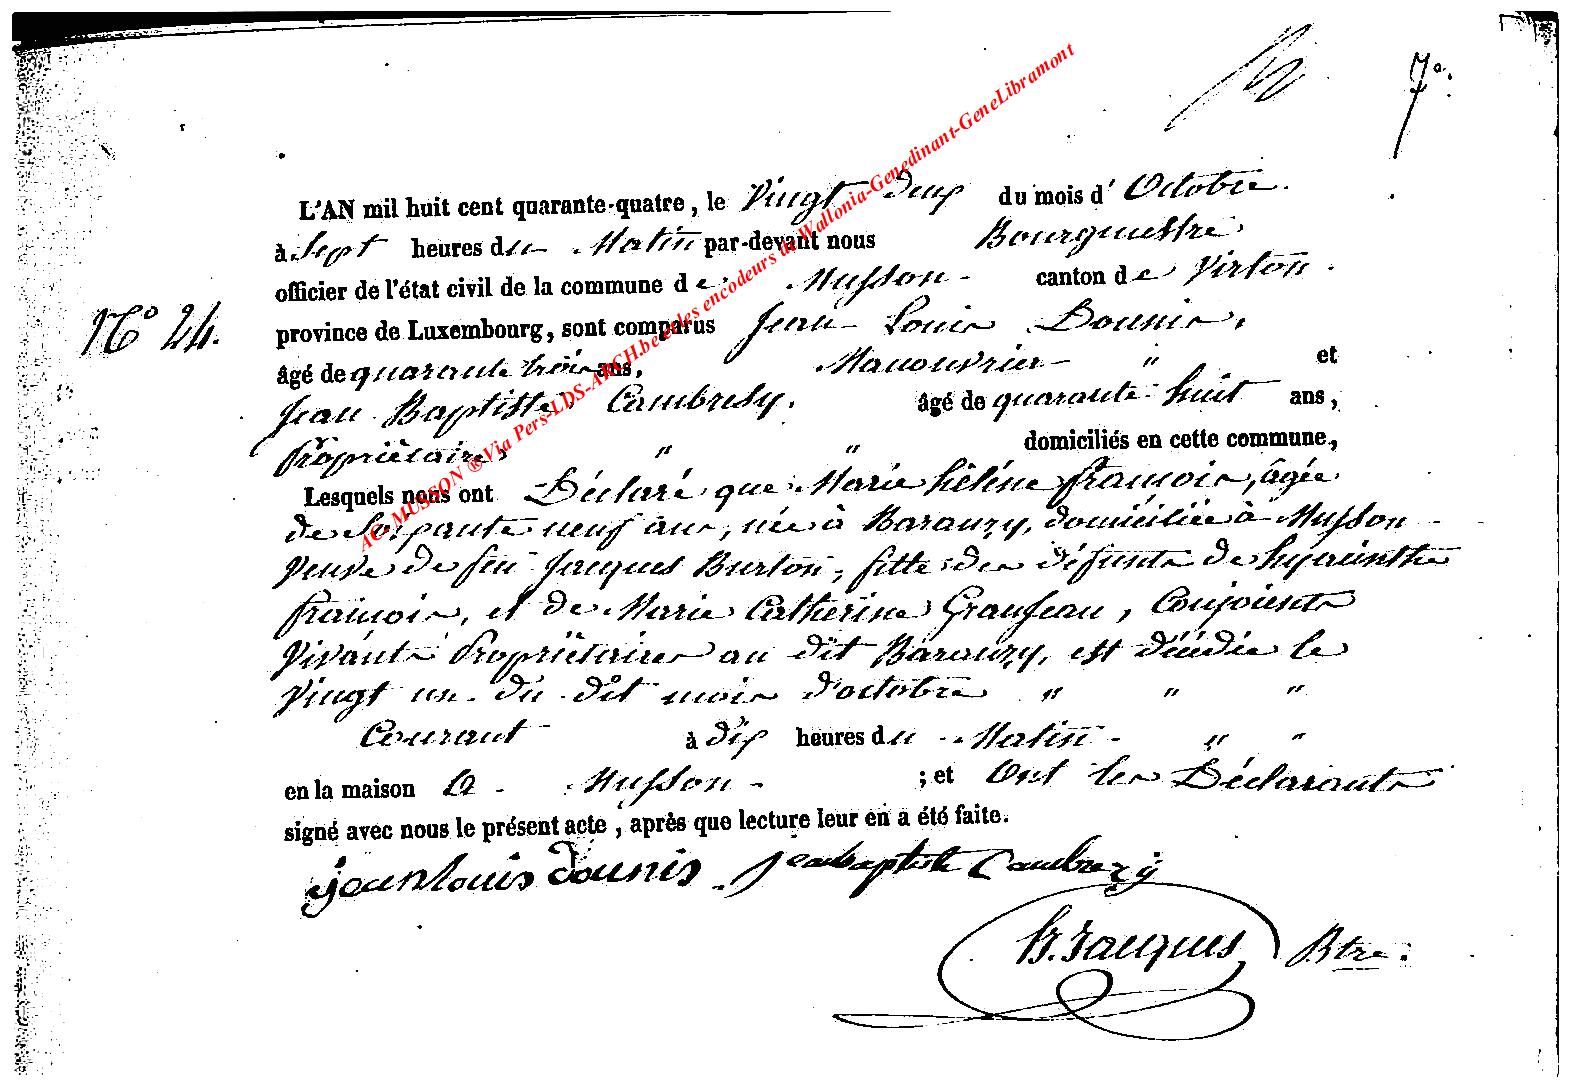 7e.
L'AN mil huit cent quarante-quatre, le Vingt deux du mois d' Octobre.
à Sept heures du Matin par-devant nous Bourgmestre
officier de l'état civil de la commune de Musson - canton de Virton.
N° 24.
province de Luxembourg, sont comparus Jean Louis Dounis,
âgé de quarante trois ans, Manouvrier - " et
Jean Baptiste Cambresy. âgé de quarante huit ans,
Propriètaire, " " domiciliés en cette commune,
Lesquels nous ont Déclaré que Marie hélène françois, âgée
de Soixante neuf ans, née à Baranzy, domiciliée à Musson -
Veuve de feu Jacques Burton, fille des défunts de hyacinthe
françois, et de Marie Catherine Granjean, Conjoints
Vivants Propriètaires au dit Baranzy, est décédée le
Vingt un du dit mois d'octobre " " "
Courant à dix heures du - Matin - " "
en la maison à - Musson - ; et Ont les Déclarants
signé avec nous le présent acte, après que lecture leur en a été faite.
jean louis dounis jeanbaptiste Cambrezÿ
h. Jacques Btre.
AC MUSSON ® Via Pers-LDS-ARCH.be et les encodeurs de Wallonia-Genedinant-GeneLibramont